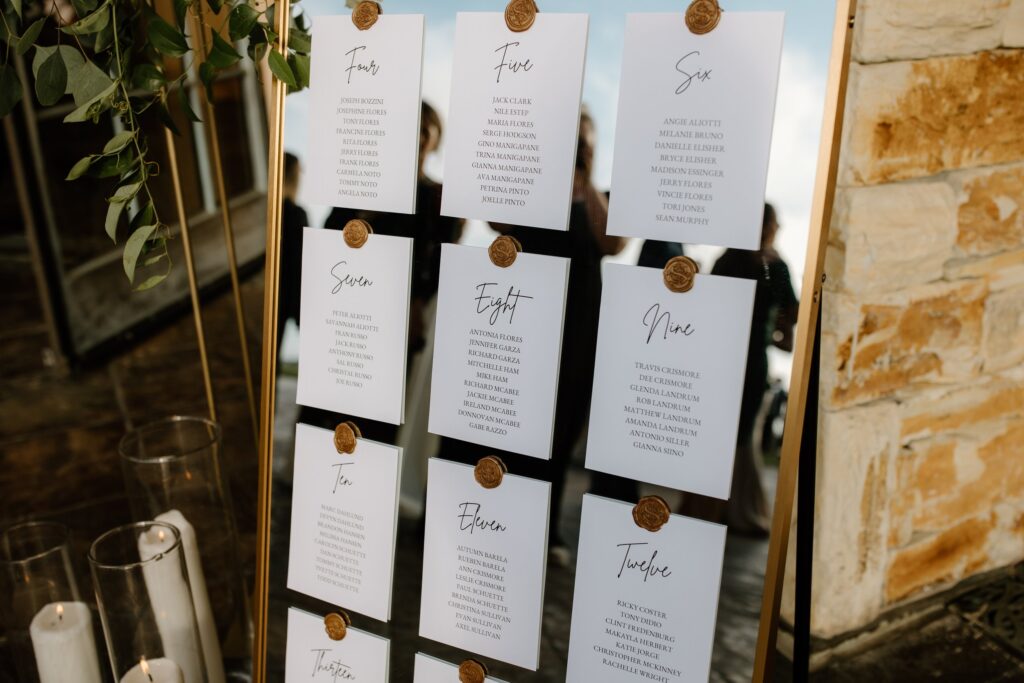 Four
JOSEPH BOZZINI
JOSEPHINE FLORES
TONY FLORES
FRANCINE FLORES
RITA FLORES
JERRY FLORES
FRANK FLORES
CARMELA NOTO
TOMMY NOTO
ANGELA NOTO
Five
JACK CLARK
NILE ESTEP
MARIA FLORES
SERGE HODGSON
GINO MANIGAPANE
TRINA MANIGAPANE
GIANNA MANIGAPANE
AVA MANIGAPANE
PETRINA PINTO
JOELLE PINTO
Six
ANGIE ALIOTTI
MELANIE BRUNO
DANIELLE ELISHER
BRYCE ELISHER
MADISON ESSINGER
JERRY FLORES
VINCIE FLORES
TORI JONES
SEAN MURPHY
Seven
PETER ALIOTTI
SAVANNAH ALIOTTI
FRAN RUSSO
JACK RUSSO
ANTHONY RUSSO
SAL RUSSO
CHRISTAL RUSSO
JOE RUSSO
Eight
ANTONIA FLORES
JENNIFER GARZA
RICHARD GARZA
MITCHELLE HAM
MIKE HAM
RICHARD MCABEE
JACKIE MCABEE
IRELAND MCABEE
DONNOVAN MCABEE
GABE RAZZO
Nine
TRAVIS CRISMORE
DEE CRISMORE
GLENDA LANDRUM
ROB LANDRUM
MATTHEW LANDRUM
AMANDA LANDRUM
ANTONIO SILLER
GIANNA SIINO
Ten
MARC DAHLUND
DEVYN DAHLUND
BRANDON HANSEN
MELINA HANSEN
CAROLINA SCHUETTE
DAN SCHUETTE
TOMMY SCHUETTE
YVETTE SCHUETTE
TODD SCHUETTE
Eleven
AUTUMN BARELA
RUEBEN BARELA
ANN CRISMORE
LESLIE CRISMORE
PAUL SCHUETTE
BRENDA SCHUETTE
CHRISTINA SULLIVAN
EVAN SULLIVAN
AXEL SULLIVAN
Twelve
RICKY COSTER
TONY DIDIO
CLINT FREDENBURG
MAKAYLA HERBERT
KATIE JORGE
CHRISTOPHER MCKINNEY
RACHELLE WRIGHT
Thirteen